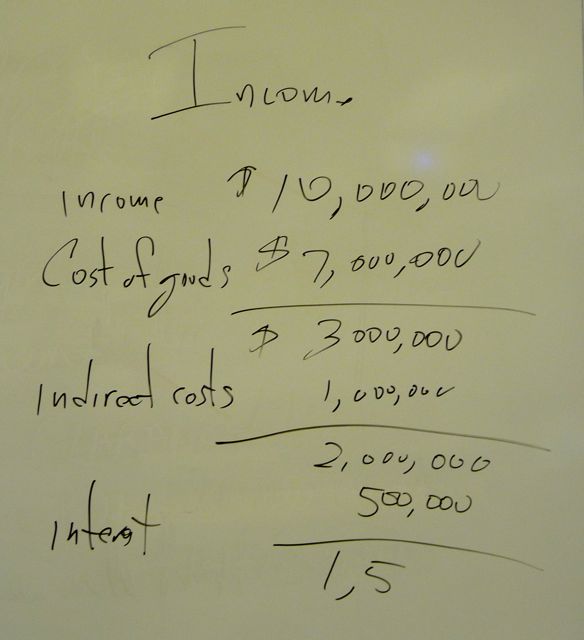 Income
Income $10,000,000
Cost of goods $7,000,000
$3000,000
Indirect costs 1,000,000
2,000,000
500,000
Interest
1,5